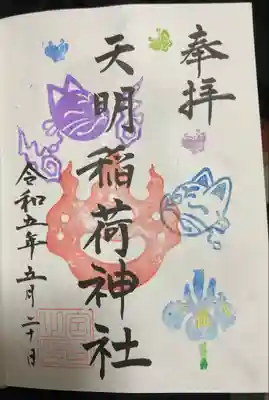 奉拝
天明稲荷神社
令和五年五月二十日